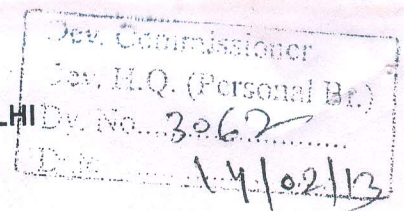 Dev. Commissioner
Dev. H.Q. (Personal Br.)
LHI Dy. No....3062.........
Dt.......14/02/13